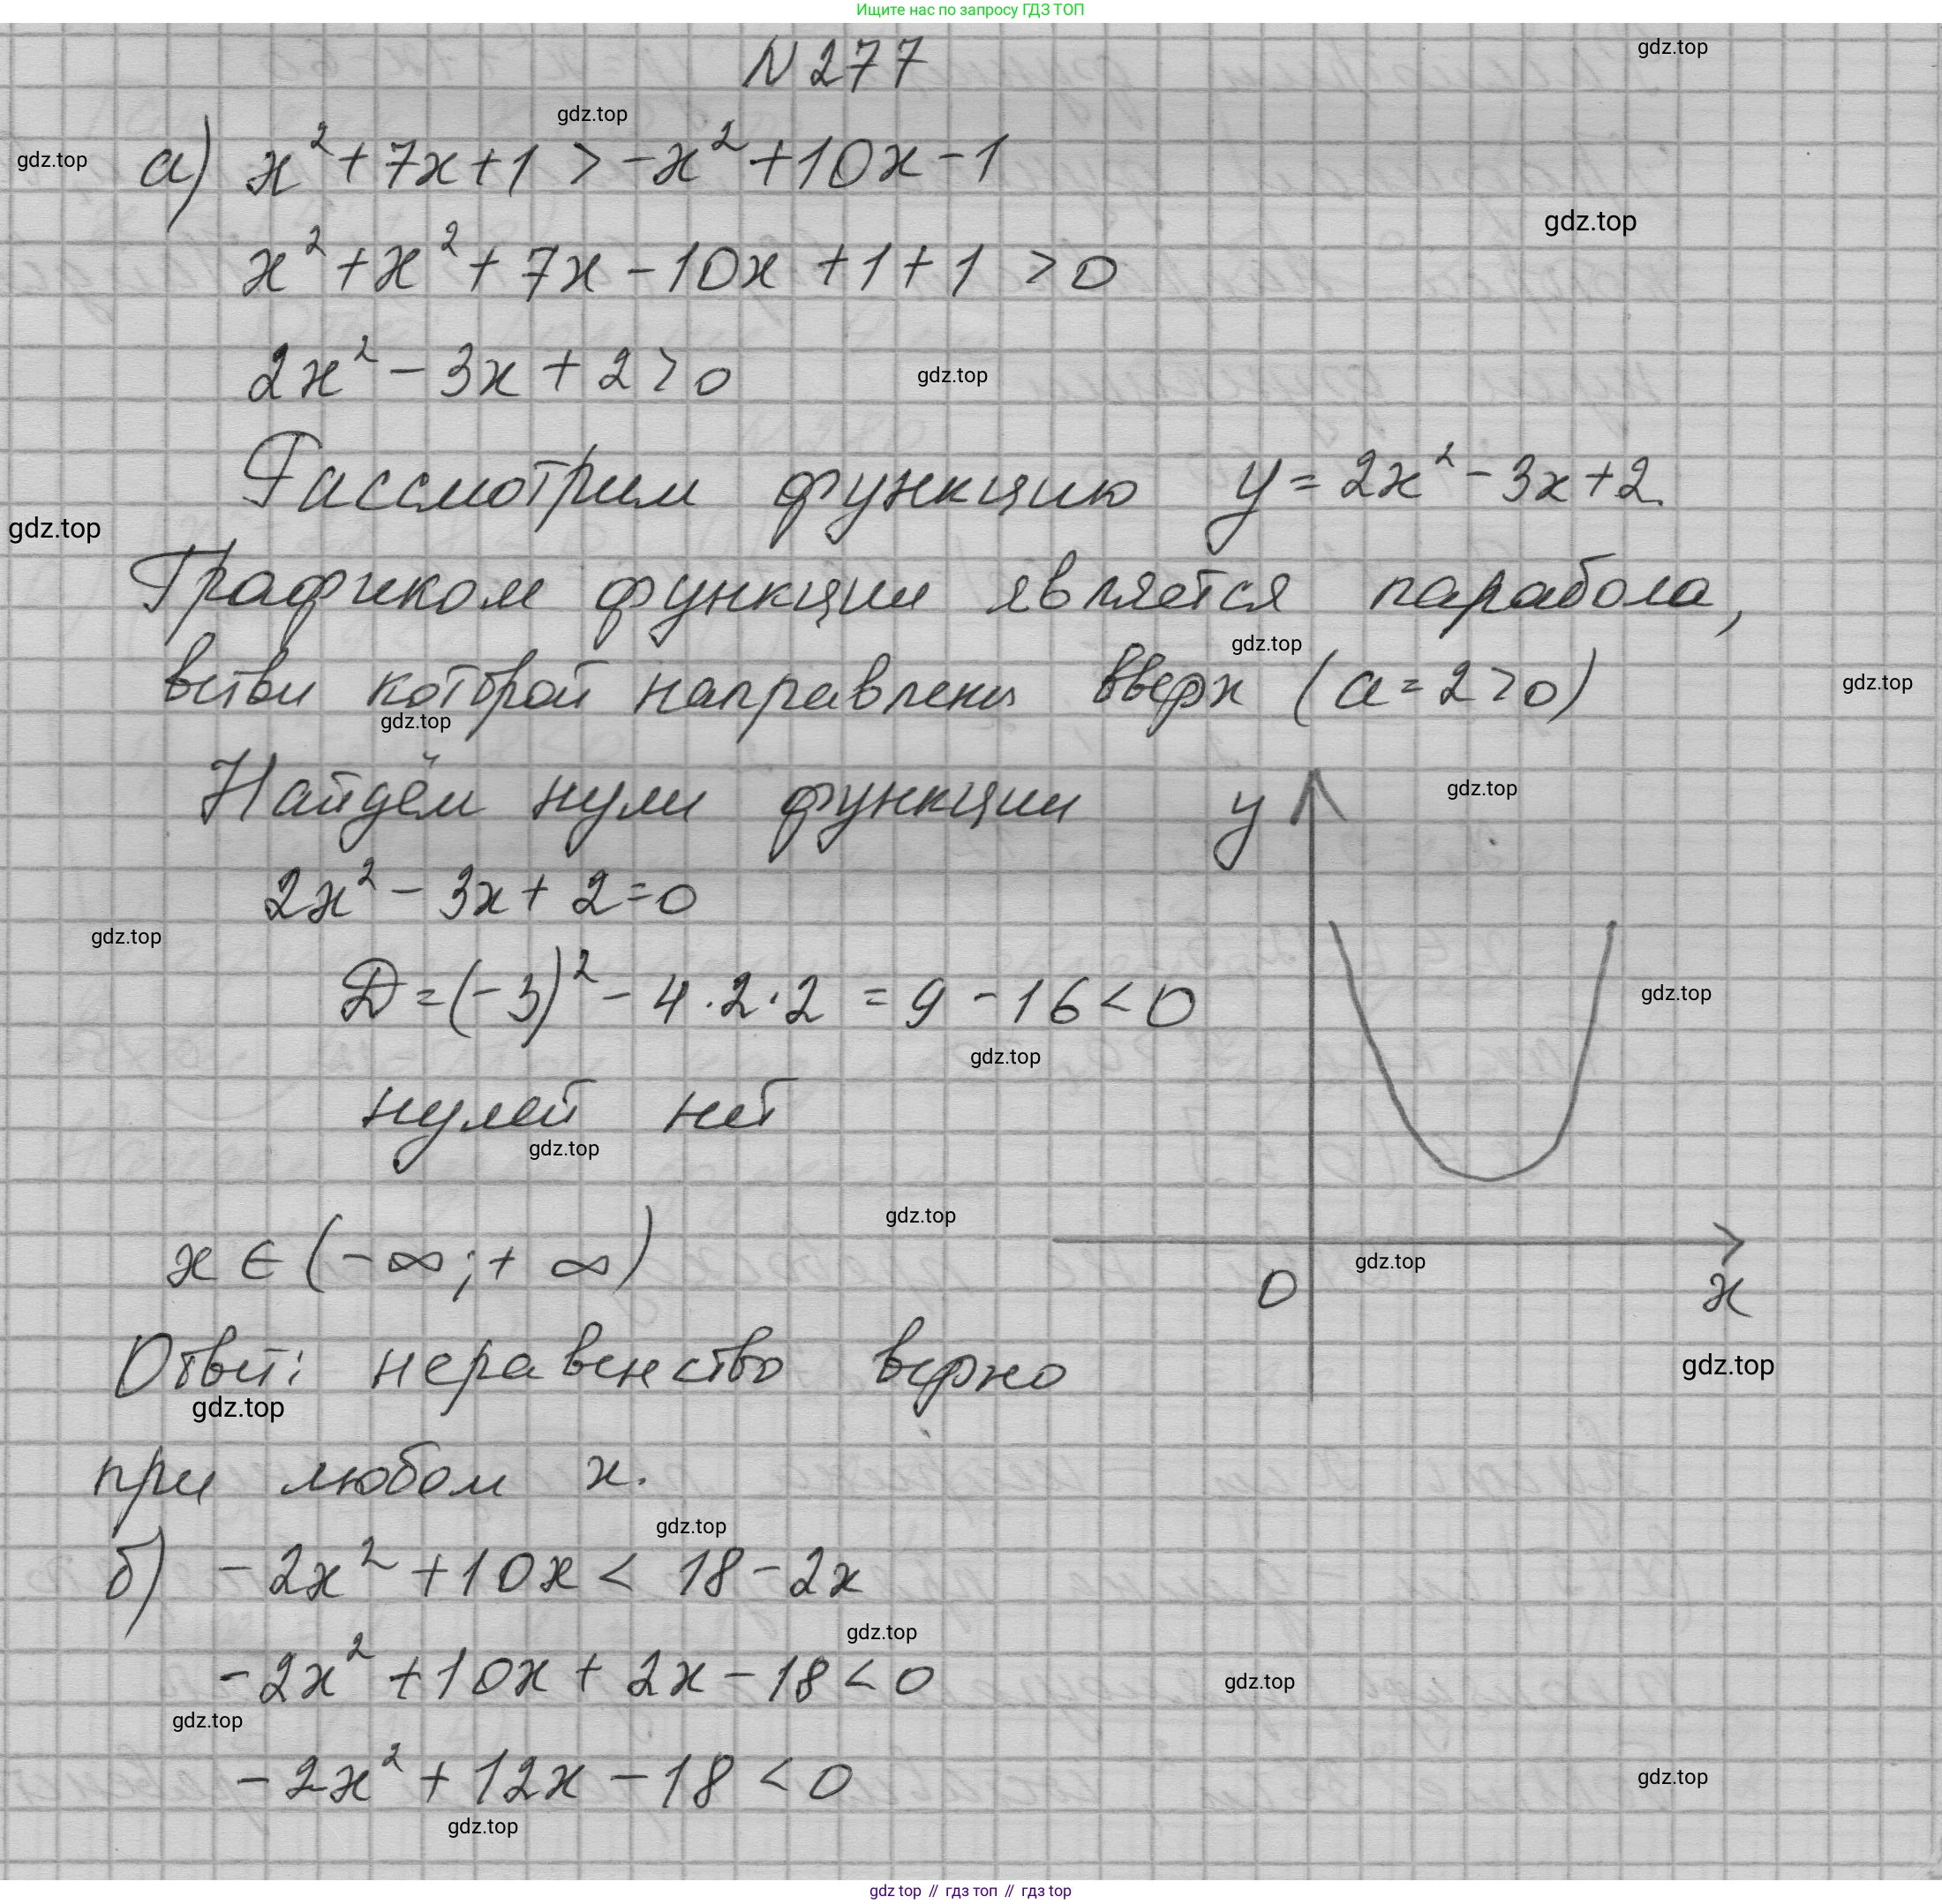 Ищите нас по запросу ГДЗ ТОП
N 277
gdz.top
gdz.top
gdz.top
а) x² + 7x + 1 > -x² + 10x - 1
gdz.top
x² + x² + 7x - 10x + 1 + 1 > 0
2x² - 3x + 2 > 0
gdz.top
Рассмотрим функцию y = 2x² - 3x + 2.
gdz.top
Графиком функции является парабола,
gdz.top
ветви которой направлены вверх (a = 2 > 0)
gdz.top
gdz.top
Найдём нули функции
y
gdz.top
2x² - 3x + 2 = 0
gdz.top
D = (-3)² - 4 · 2 · 2 = 9 - 16 < 0
gdz.top
gdz.top
нулей нет
gdz.top
gdz.top
x ∈ (-∞; +∞)
gdz.top
0
x
Ответ: неравенство верно
gdz.top
gdz.top
при любом x.
gdz.top
б) -2x² + 10x < 18 - 2x
gdz.top
-2x² + 10x + 2x - 18 < 0
gdz.top
gdz.top
-2x² + 12x - 18 < 0
gdz.top
gdz.top
gdz top // гдз топ // гдз top